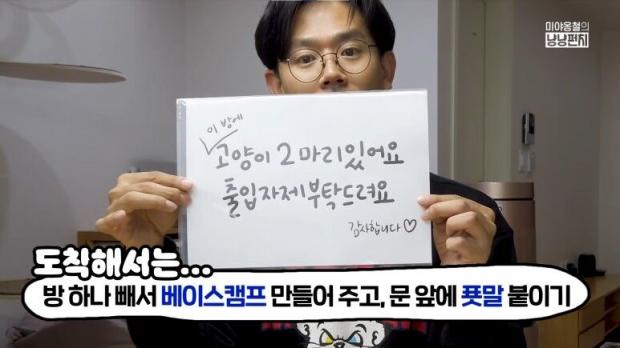 미야옹철의
냥냥펀치
이 방에
고양이 2마리있어요
출입자제부탁드려요
감사합니다♡
도착해서는...
방 하나 빼서 베이스캠프 만들어 주고, 문 앞에 푯말 붙이기